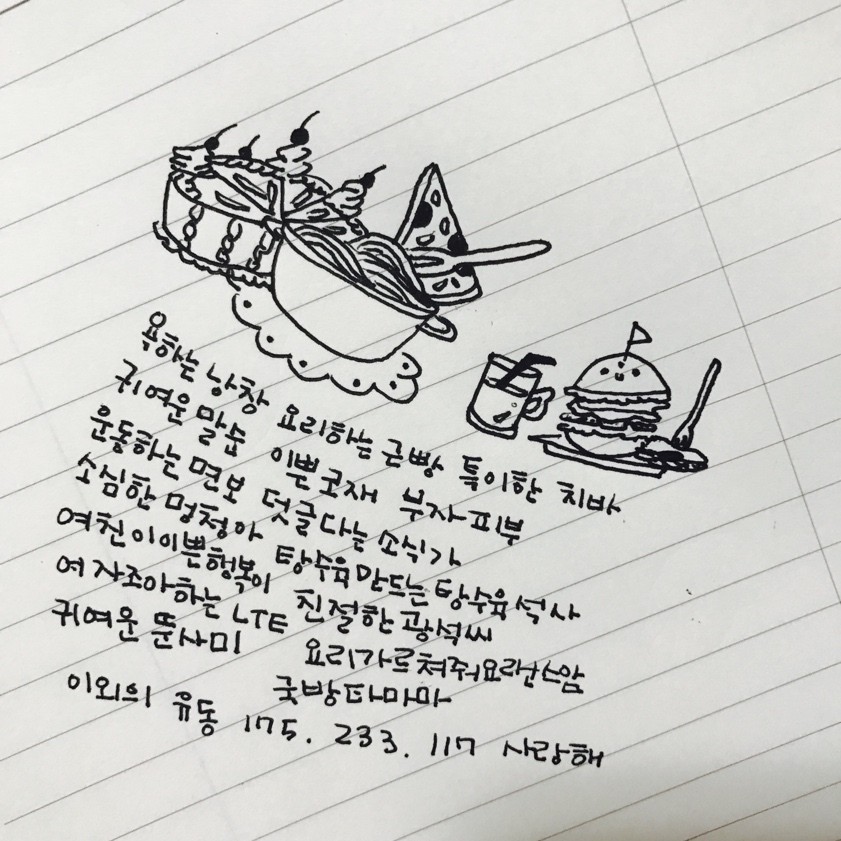 욕하는 낭창 요리하는 근빵 특이한 치바
귀여운 말순 이쁜국재 부자피부
운동하는 면보 덧글다는 소식가
소심한 멍청아 탕수육만드는 탕수육석사
여친이이쁜행복이 친절한광석씨
여자조아하는 LTE 요리가르쳐줘요랜스암
귀여운 뚠사미 굿방타마마
이외의 유동 175. 233. 117 사랑해